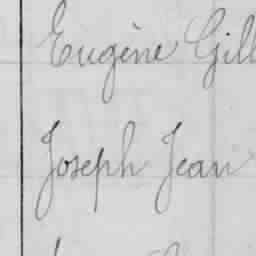 Eugène Gill
Joseph Jean